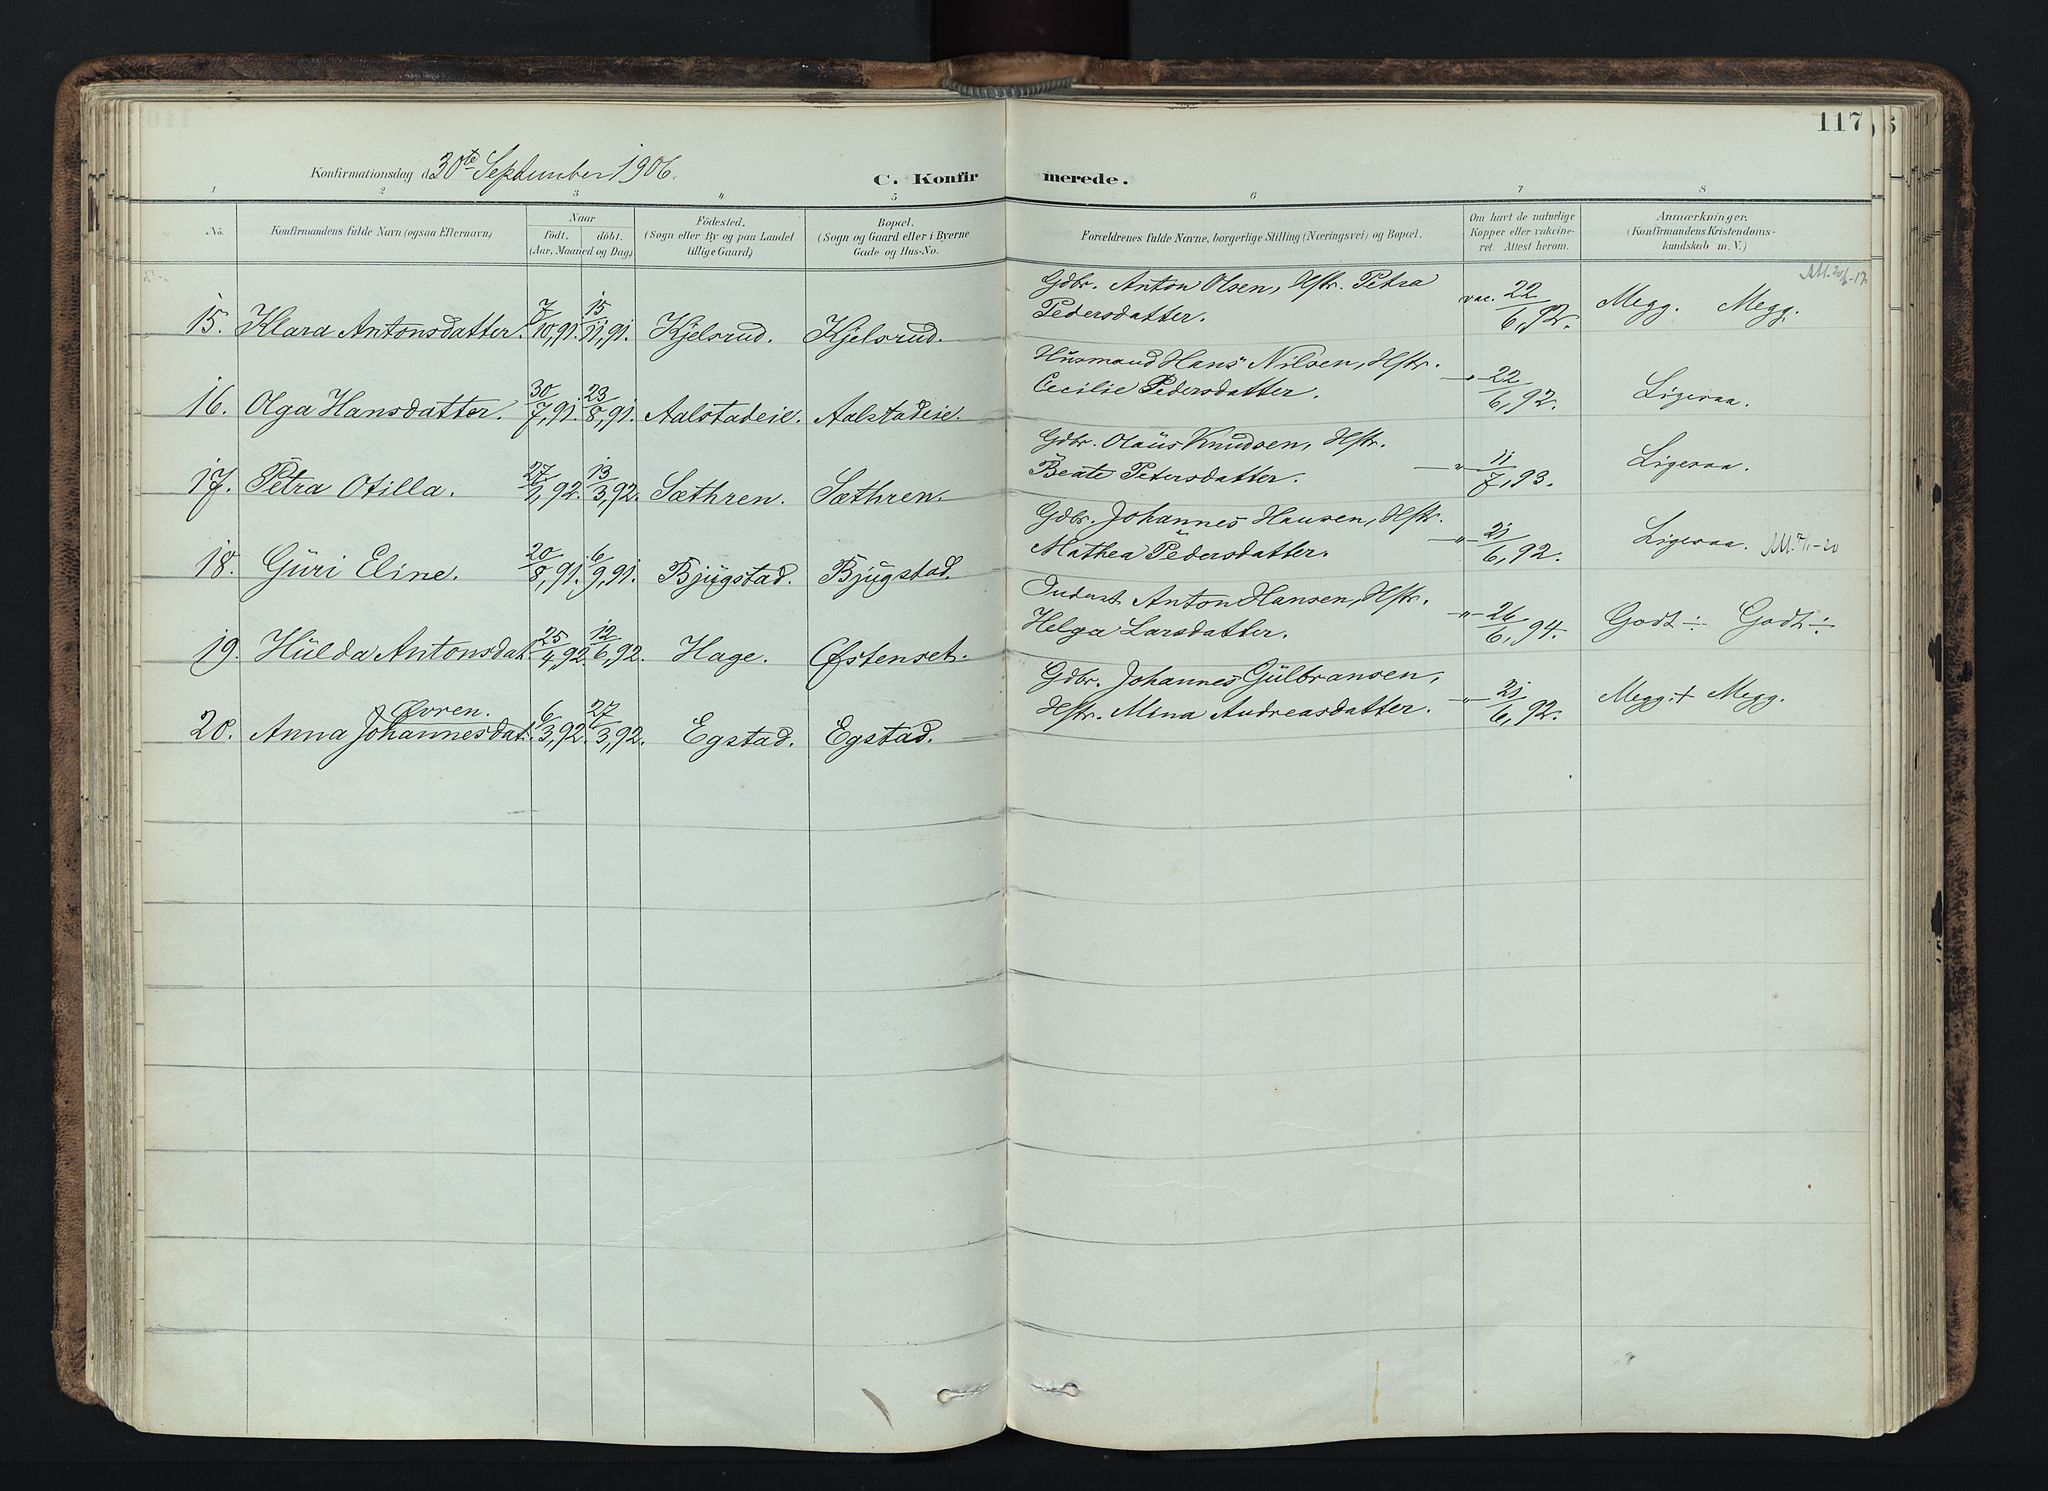 117
Konfirmationsdag d. 30te September 1906.
C. Konfirmerede.
1 2 3 4 5 6 7 8
No.
Konfirmandens fulde Navn (ogsaa Efternavn)
Naar
født. døbt.
(Aar, Maaned og Dag)
Fødested.
(Sogn eller By og paa Landet
tillige Gaard)
Bopæl.
(Sogn og Gaard efter i Byerne
Gade og Hus-No.
Forældrenes fulde Navne, borgerlige Stilling (Næringsvei) og Bopæl.
Om havt de naturlige
Kopper eller vakcine-
ret. Attest herom.
Anmærkninger.
(Konfirmandens Kristendoms-
kundskab m. V.)
15. Klara Antonsdatter. 7/10, 91. 15/11, 91. Kjelsrud. Kjelsrud.
Gdbr. Anton Olsen, Hstr. Petra
Pedersdatter.
vac. 22/6, 92. Megg. Megg.
16. Olga Hansdatter. 30/7, 91. 23/8, 91. Aalstadeie. Aalstadeie.
Husmand Hans Nilsen, Hstr.
Cecilie Pedersdatter.
—"— 22/6, 92. Ligesaa.
17. Petra Otilla. 27/1, 92. 13/3, 92. Sæthren. Sæthren.
Gdbr. Olaus Knudsen, Hstr.
Beate Petersdatter.
—"— 11/7, 93. Ligesaa.
18. Guri Eline. 20/8, 91. 6/9, 91. Bjugstad. Bjugstad.
Gdbr. Johannes Hansen, Hstr.
Mathea Pedersdatter.
—"— 21/6, 92. Ligesaa.
19. Hulda Antonsdat. 25/4, 92. 12/6, 92. Hage. Østenset.
Inderst Anton Hansen, Hstr.
Helga Larsdatter.
—"— 26/6, 94. Godt ÷ Godt ÷
Øvren.
20. Anna Johannesdat. 6/3, 92. 27/3, 92. Egstad. Egstad.
Gdbr. Johannes Gulbransen,
Hstr. Mina Andreasdatter.
—"— 21/6, 92. Megg. + Megg.